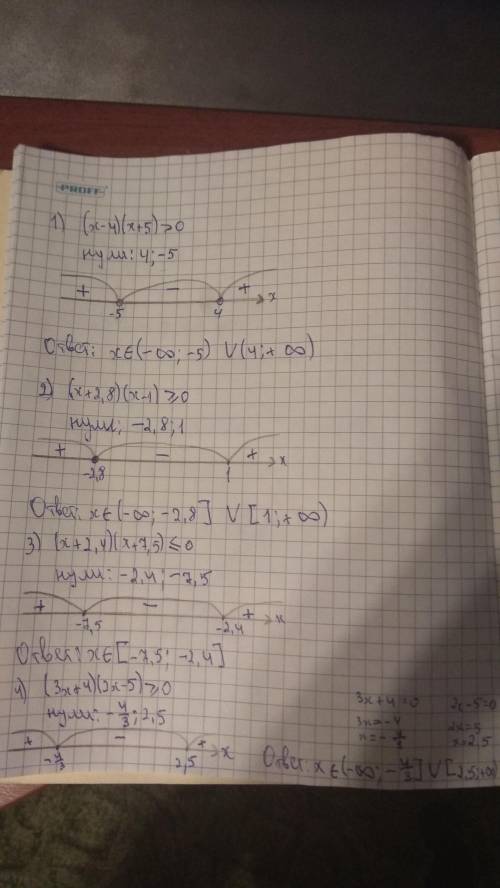 PROFF
1) (x-4)(x+5)>0
нули: 4; -5
+ - + x
-5 4
Ответ: x∈(-∞; -5) ∪ (4; +∞)
2) (x+2,8)(x-1)⩾0
нули; -2,8; 1
+ - + x
-2,8 1
Ответ: x∈(-∞; -2,8] ∪ [1; +∞)
3) (x+2,4)(x+7,5)⩽0
нули: -2,4; -7,5
+ - + x
-7,5 -2,4
Ответ: x∈[-7,5; -2,4]
4) (3x+4)(2x-5)⩾0
нули: -4/3; 2,5
+ - + x
-4/3 2,5
3x+4=0 2x-5=0
3x=-4 2x=5
x=-4/3 x=2,5
Ответ: x∈(-∞; -4/3] ∪ [2,5; +∞)